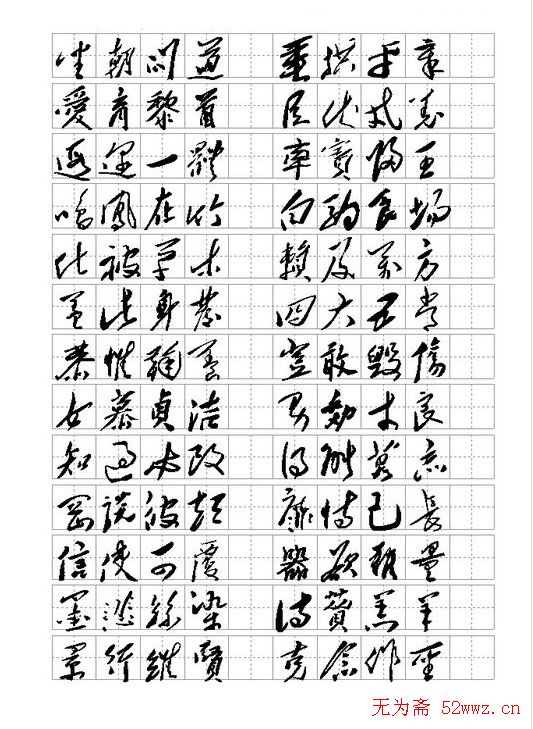 坐朝問道 垂拱平章
愛育黎首 臣伏戎羌
遐邇一體 率賓歸王
鳴鳳在竹 白駒食場
化被草木 賴及萬方
蓋此身髮 四大五常
恭惟鞠養 豈敢毀傷
女慕貞洁 男効才良
知過必改 得能莫忘
罔談彼短 靡恃己長
信使可覆 器欲難量
墨悲絲染 詩贊羔羊
景行維賢 克念作聖
无为斋 52wwz.cn